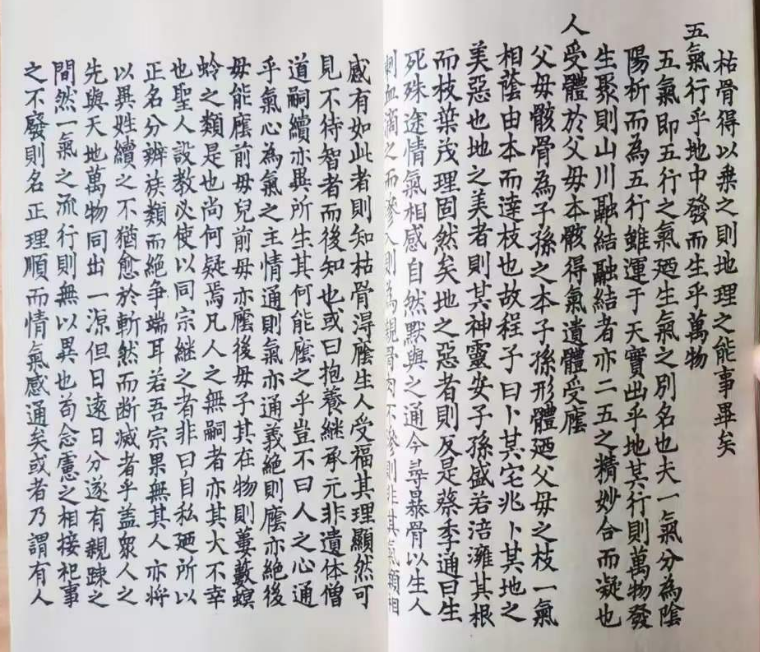 枯骨得以乗之則地理之能事畢矣
五氣行乎地中發而生乎萬物
五氣即五行之氣廼生氣之別名也夫一氣分為陰
陽析而為五行雖運于天實出乎地其行則萬物發
生聚則山川融結融結者亦二五之精妙合而凝也
人受體於父母本骸得氣遺體受廕
父母骸骨為子孫之本子孫形體廼父母之枝一氣
相蔭由本而達枝也故程子曰卜其宅兆卜其地之
美惡也地之美者則其神靈安子孫盛若涪濰其根
而枝葉茂理固然矣地之惡者則反是蔡季通曰生
死殊途情氣相感自然默與之通今尋暴骨以生人
刺血滴之而滲入則為親骨肉不滲則非其氣類相
感有如此者則知枯骨淂廕生人受福其理顯然可
見不待智者而後知也或曰抱養継承元非遺体僧
道嗣續亦異所生其何能廕之乎豈不曰人之心通
乎氣心為氣之主情通則氣亦通義絶則廕亦絶後
母能廕前母兒前母亦廕後母子其在物則蔞藪螟
蛉之類是也尚何疑焉凡人之無嗣者亦其大不幸
也聖人設教必使以同宗継之者非曰自私廼所以
正名分辨族類而絶争端耳若吾宗果無其人亦將
以異姓續之不猶愈於斬然而断滅者乎蓋眾人之
先與天地萬物同出一源但日遠日分遂有親踈之
間然一氣之流行則無以異也苟念慮之相接祀事
之不廢則名正理順而情氣感通矣或者乃謂有人